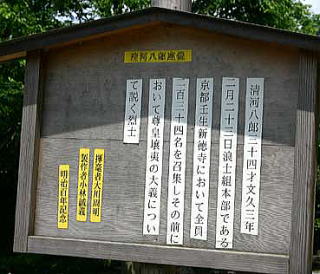 清河八郎遺蹟
清河八郎三十四才文久三年
二月二十三日浪士組本部である
京都壬生新徳寺において全員
二百三十四名を召集しその前に
おいて尊皇攘夷の大義につい
て説く烈士
揮毫者大川周明
製作者小林誠義
明治百年記念